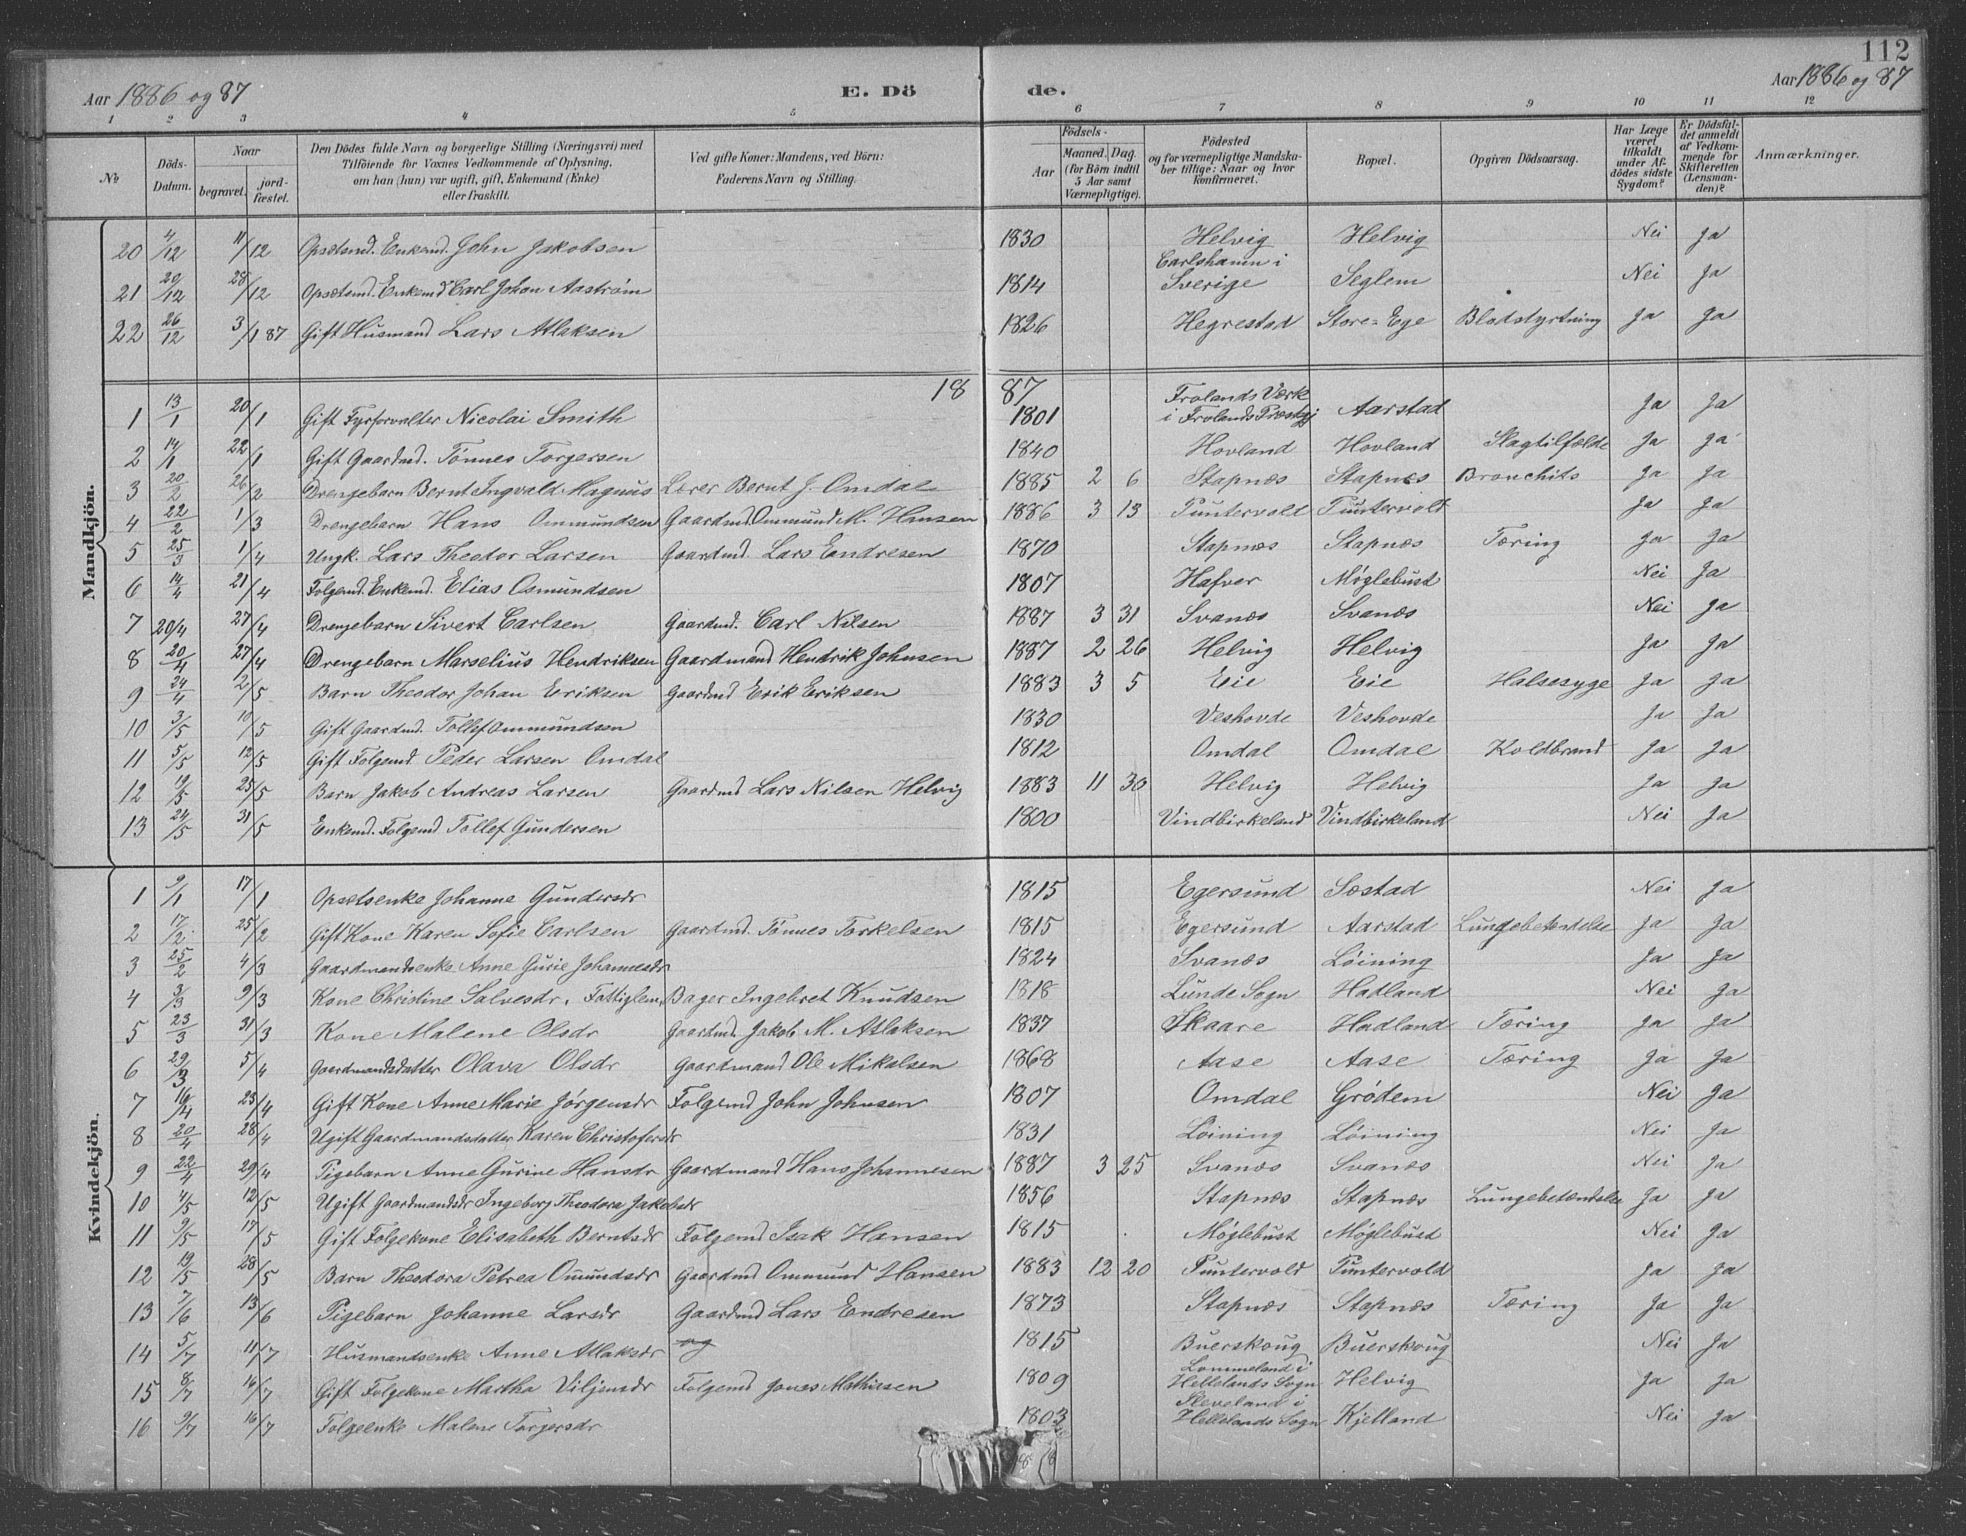 112
Aar 1886 og 87
E. Dö de.
Aar 1886 og 87
1 2 3 4 5 6 7 8 9 10 11 12
№
Döds-Datum.
Naar
begravet. jordfæstet.
Den Dödes fulde Navn og borgerlige Stilling (Næringsvei) med
Tilföiende for Voxnes Vedkommende af Oplysning,
om han (hun) var ugift, gift, Enkemand (Enke)
eller fraskilt.
Ved gifte Koner: Mandens, ved Börn:
Faderens Navn og Stilling.
Födsels-
Aar Maaned. Dag.
(for Börn indtil
5 Aar samt
Værnepligtige).
Födested
og for værnepligtige Mandska-
ber tillige: Naar og hvor
konfirmeret.
Bopæl.
Opgiven Dödsaarsag.
Har Læge
været
tilkaldt
under Af-
dödes sidste
Sygdom?
Er Dödsfal-
det anmeldt
af Vedkom-
mende for
Skifteretten
(Lensman-
den)?
Anmærkninger.
Mandkjön.
20 4/12 11/12 Opsætsmd. Enkemd. John Jakobsen 1830 Helvig Helvig Nei Ja
21 20/12 28/12 Opsætsmd. Enkemd Carl Johan Aastrøm 1814 Carlshamn i Sverige Seglem Nei Ja
22 26/12 3/1 87 Gift Husmand Lars Atlaksen 1826 Hegrestad Store-Ege Blodstyrtning Ja Ja
18 87
1 13/1 20/1 Gift Fyrforvalter Nicolai Smith 1801 Frolands Værk i Frolands Præstgj Aarstad Ja Ja
2 14/1 22/1 Gift Gaardmd. Tönnes Torgersen 1840 Hovland Hovland Slagtilfælde Ja Ja
3 20/2 26/2 Drengebarn Bernt Ingvald Magnus Lærer Bernt J. Omdal 1885 2 6 Stapnæs Stapnæs Bronchits Ja Ja
4 22/2 1/3 Drengebarn Hans Ommundsen Gaardmd. Ommund M. Hansen 1886 3 13 Puntervold Puntervold Ja Ja
5 25/3 1/4 Ungk. Lars Theodor Larsen Gaardmd. Lars Endresen 1870 Stapnæs Stapnæs Tæring Ja Ja
6 14/4 21/4 Folgemd. Enkemd. Elias Osmundsen 1807 Hafver Møglebust Nei Ja
7 20/4 27/4 Drengebarn Sivert Carlsen Gaardmd. Carl Nilsen 1887 3 31 Svanæs Svanæs Nei Ja
8 20/4 27/4 Drengebarn Marselius Hendriksen Gaardmand Hendrik Johnsen 1887 2 26 Helvig Helvig Ja Ja
9 24/4 2/5 Barn Theodor Johan Eriksen Gaardmd Erik Eriksen 1883 3 5 Eie Eie Halsesyge Ja Ja
10 3/5 10/5 Gift Gaardmd. Tollef Ommundsen 1830 Veshovde Veshovde Ja Ja
11 5/5 12/5 Gift Folgemd Peder Larsen Omdal 1812 Omdal Omdal Koldbrand Ja Ja
12 19/5 25/5 Barn Jakob Andreas Larsen Gaardmd Lars Nilsen Helvig 1883 11 30 Helvig Helvig Ja Ja
13 24/5 31/5 Enkemd. Folgemd Tollef Gundersen 1800 Vindbirkeland Vindbirkeland Nei Ja
Kvindekjön.
1 9/1 17/1 Opsætsenke Johanne Gundersdr 1815 Egersund Sæstad Nei Ja
2 17/2 25/2 Gift Kone Karen Sofie Carlsen Gaardmd. Tönnes Torkelsen 1815 Egersund Aarstad Lungebetændelse Ja Ja
3 25/2 4/3 Gaardmandsenke Anne Gurie Johannesdr 1824 Svanæs Löining Ja Ja
4 3/3 9/3 Kone Christine Salvesdr, Fattiglem, Bager Ingebret Knudsen 1818 Lunde Sogn Hadland Nei Ja
5 23/3 31/3 Kone Malene Olsdr Gaardmd. Jakob M. Atlaksen 1837 Skaare Hadland Tæring Ja Ja
6 29/3 5/4 Gaardmandsdatter Olava Olsdr Gaardmand Ole Mikalsen 1868 Aase Aase Tæring Ja Ja
7 16/4 23/4 Gift Kone Anne Marie Jørgensdr Folgemd John Johnsen 1807 Omdal Grödem Nei Ja
8 20/4 28/4 Ugift Gaardmandsdatter Karen Christofersdr 1831 Löining Löining Nei Ja
9 22/4 29/4 Pigebarn Anne Gurine Hansdr Gaardmand Hans Johannesen 1887 3 25 Svanæs Svanæs Nei Ja
10 4/5 12/5 Ugift Gaardmandsdr Ingeborg Theodora Jakobsdr 1856 Stapnæs Stapnæs Lungebetændelse Ja Ja
11 9/5 17/5 Gift Folgekone Elisabeth Berntsdr Folgemd Isak Hansen 1815 Møglebust Møglebust Nei Ja
12 19/5 28/5 Barn Theodora Petrea Omundsdr Gaardmd Ommund Hansen 1883 12 20 Puntervold Puntervold Ja Ja
13 7/6 13/6 Pigebarn Johanne Larsdr Gaardmd Lars Endresen 1873 Stapnæs Stapnæs Tæring Ja Ja
14 5/7 11/7 Husmandsenke Anne Atlaksdr 1815 Buerskoug Buerskoug Nei Ja
15 8/7 16/7 Gift Folgekone Martha Viljumsdr Folgemd Jonas Mathiesen 1809 Lommeland i Hellelands Sogn Helvig Ja Ja
16 9/7 16/7 Folgeenke Malene Torgersdr 1803 Skeveland i Hellelands Sogn Kjelland Nei Ja